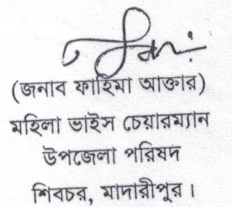 (জনাব ফাহিমা আক্তার)
মহিলা ভাইস চেয়ারম্যান
উপজেলা পরিষদ
শিবচর, মাদারীপুর।